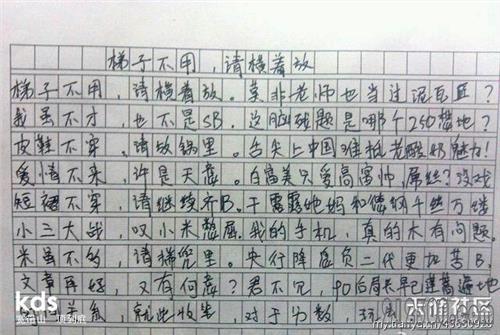 梯子不用，请横着放
梯子不用，请横着放。莫非老师也当过泥瓦匠？
我虽不才，也不是SB。这脑残题是哪个250捣地？
皮鞋不穿，请放锅里。舌尖上中国3谁抵老酸奶魅力！
爱情不来，许是天意。白富美只爱高富帅，屌丝？没戏
短裙不穿，请继续齐B。干露露她妈和傻钢千丝万缕
小三大战，叹小米憋屈。我的手机，真的木有问题。
米虽不多，请捂兜里。央行降息负二代更加苦B
文章再好，又有何意？君不见，90后局长早已遍遍地
就此收笔 对于分数，
kds
宽带山
天涯社区